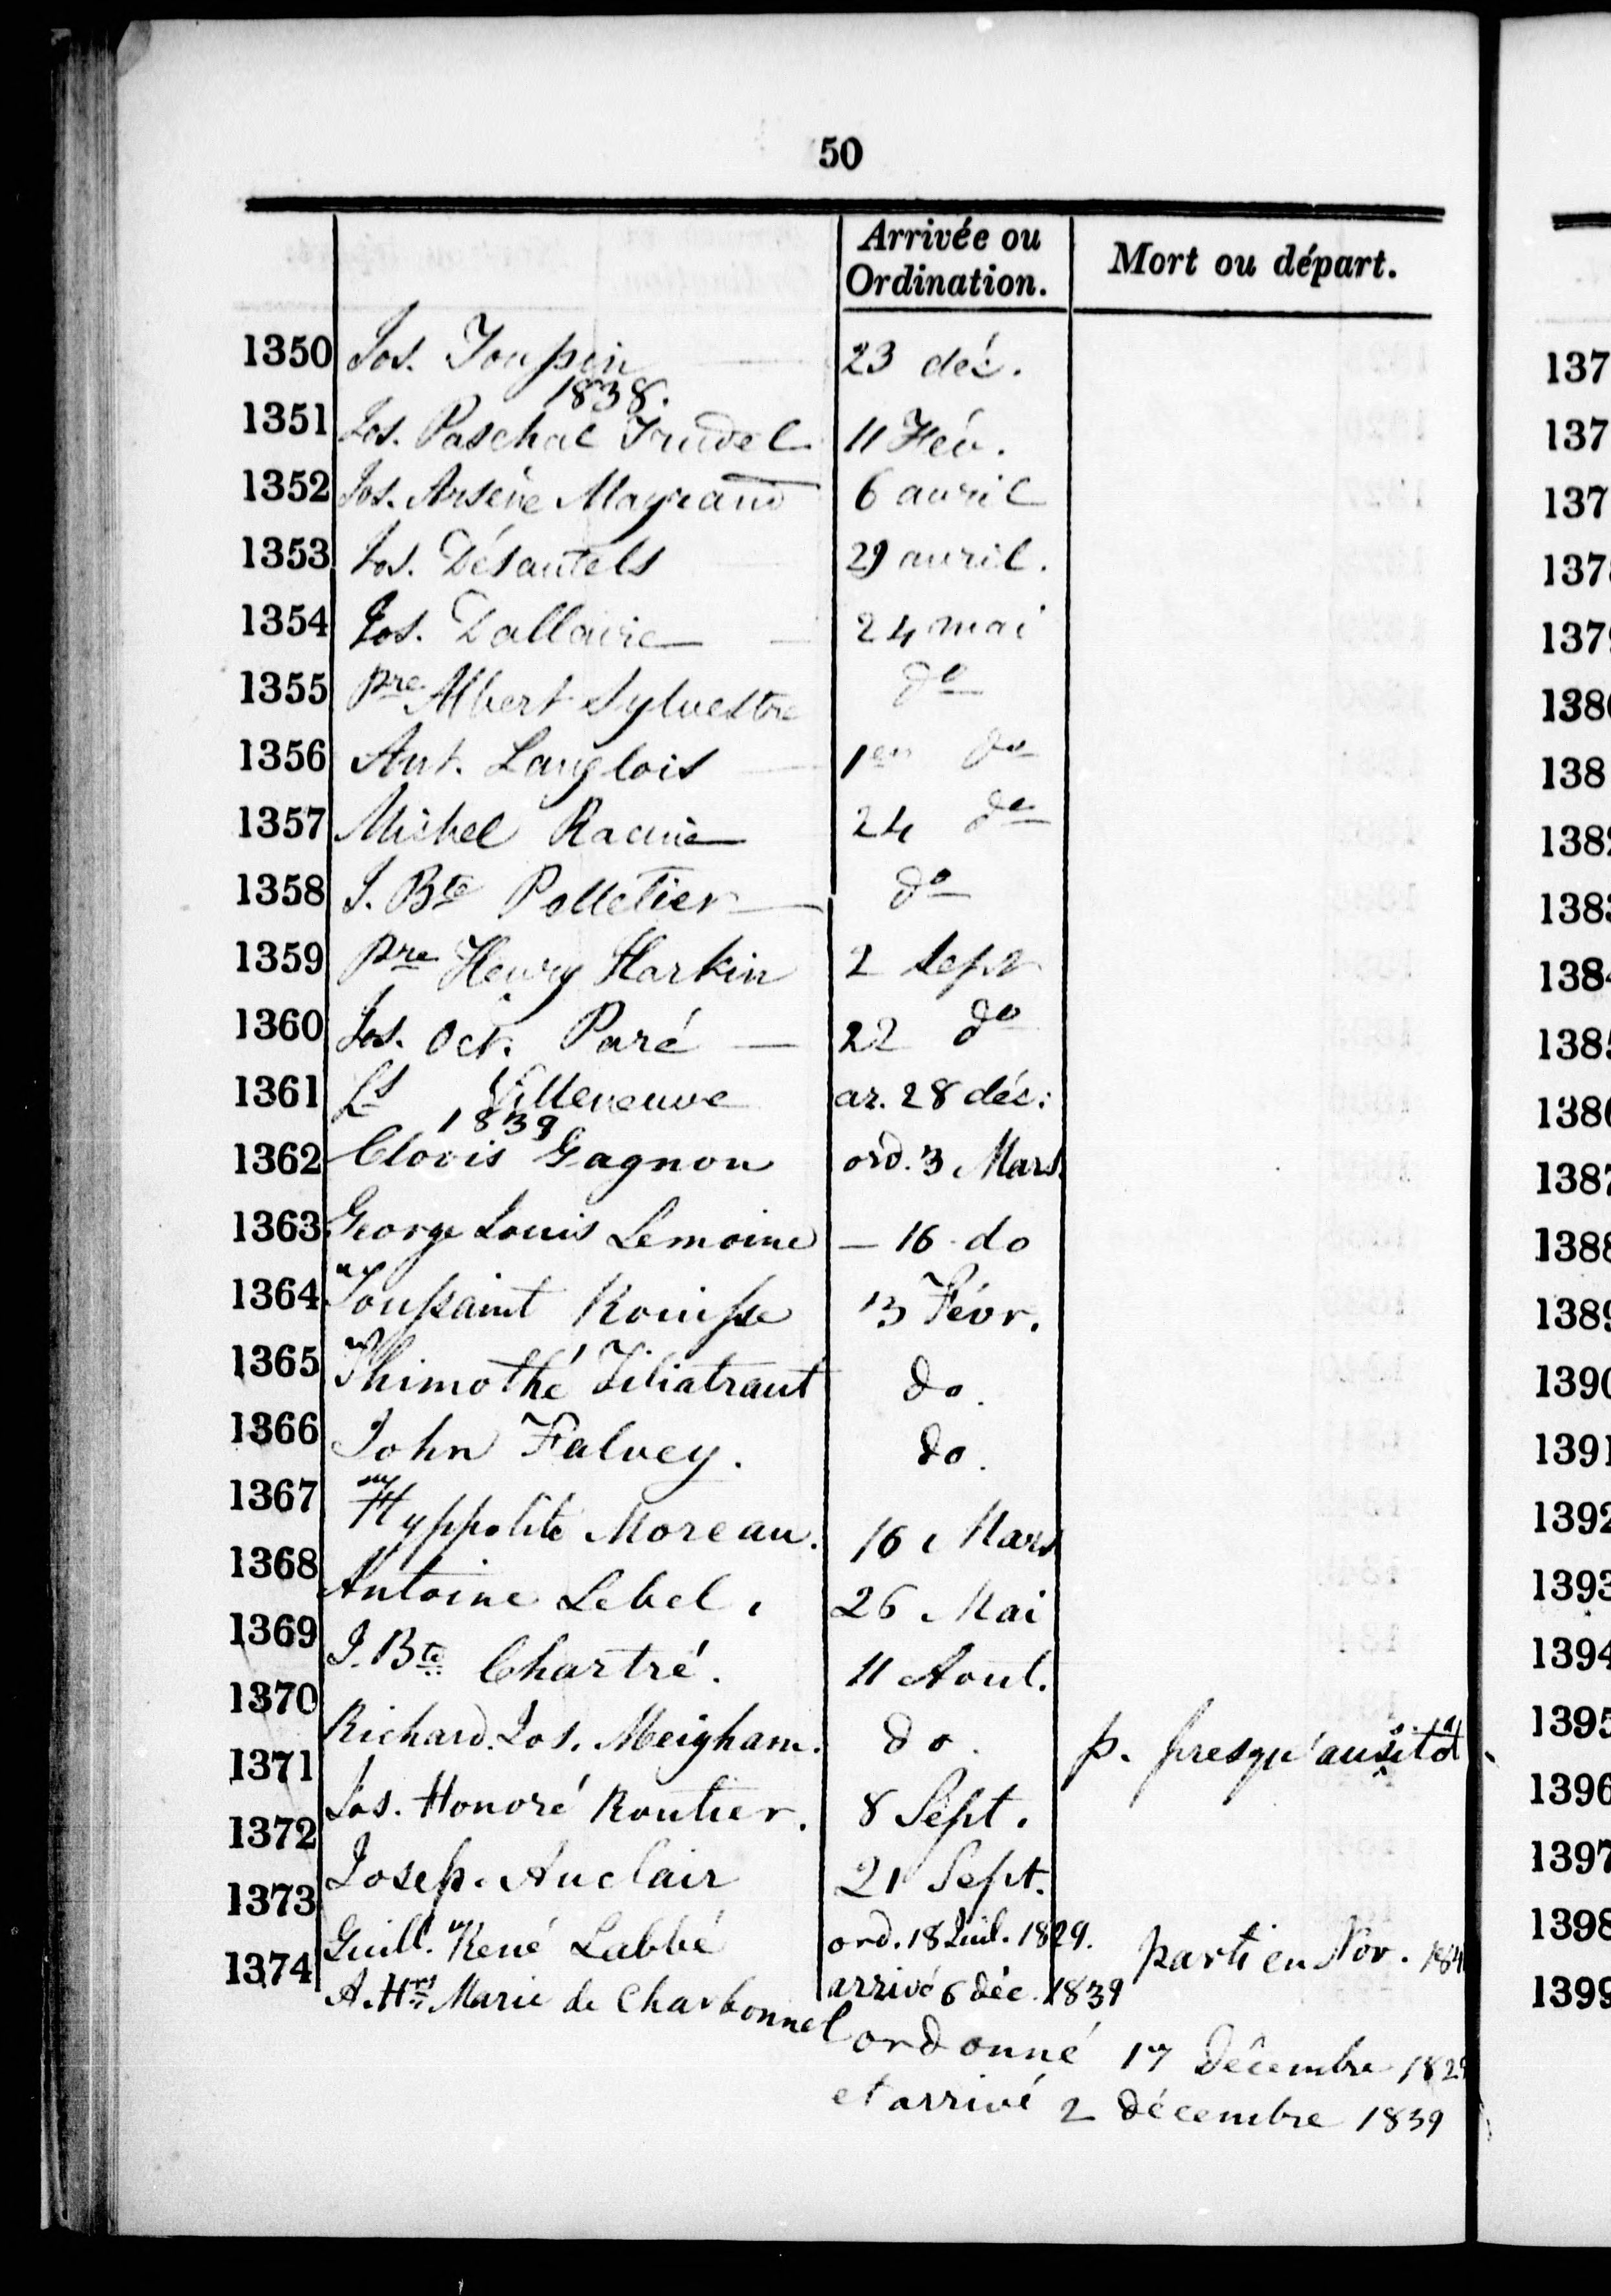 50
Arrivée ou Ordination. Mort ou départ.
1350 Jos. Toupin 23 déc.
1838.
1351 Jos. Paschal Trudel 11 Fév.
1352 Jos. Arsène Mayrand 6 avril
1353 Jos. Désautels 29 avril.
1354 Jos. Dallaire 24 mai
1355 Pre Albert Sylvestre do
1356 Ant. Langlois 1er do
1357 Michel Racine 24 do
1358 J. Bte Pelletier do
1359 Pre Henry Harkin 2 Sept
1360 Jos. Oct. Paré 22 do
1361 Ls Villeneuve ar. 28 déc.
1839
1362 Clovis Gagnon ord. 3 Mars
1363 George Louis Lemoine — 16 do
1364 Toussaint Rouisse 13 Févr.
1365 Thimothé Filiatraut do.
1366 John Falvey. do.
1367 Hyppolite Moreau. 16 Mars
1368 Antoine Lebel. 26 Mai
1369 J. Bte Chartré. 11 Aout.
1370 Richard Jos. Meigham. do. p. presqu'ausitôt
1371 Jos. Honoré Routier. 8 Sept.
1372 Josep. Auclair 21 Sept.
1373 Guill. René Labbé ord. 18 Juil. 1829. parti en Nov. 184
arrivé 6 déc. 1839
1374 A. Hri Marie de Charbonnel ordonné 17 Décembre 182
et arrivé 2 décembre 1839
137
137
137
137
1379
1380
138
1382
1383
1384
1385
1386
1387
1388
1389
1390
1391
1392
1393
1394
1395
1396
1397
1398
1399